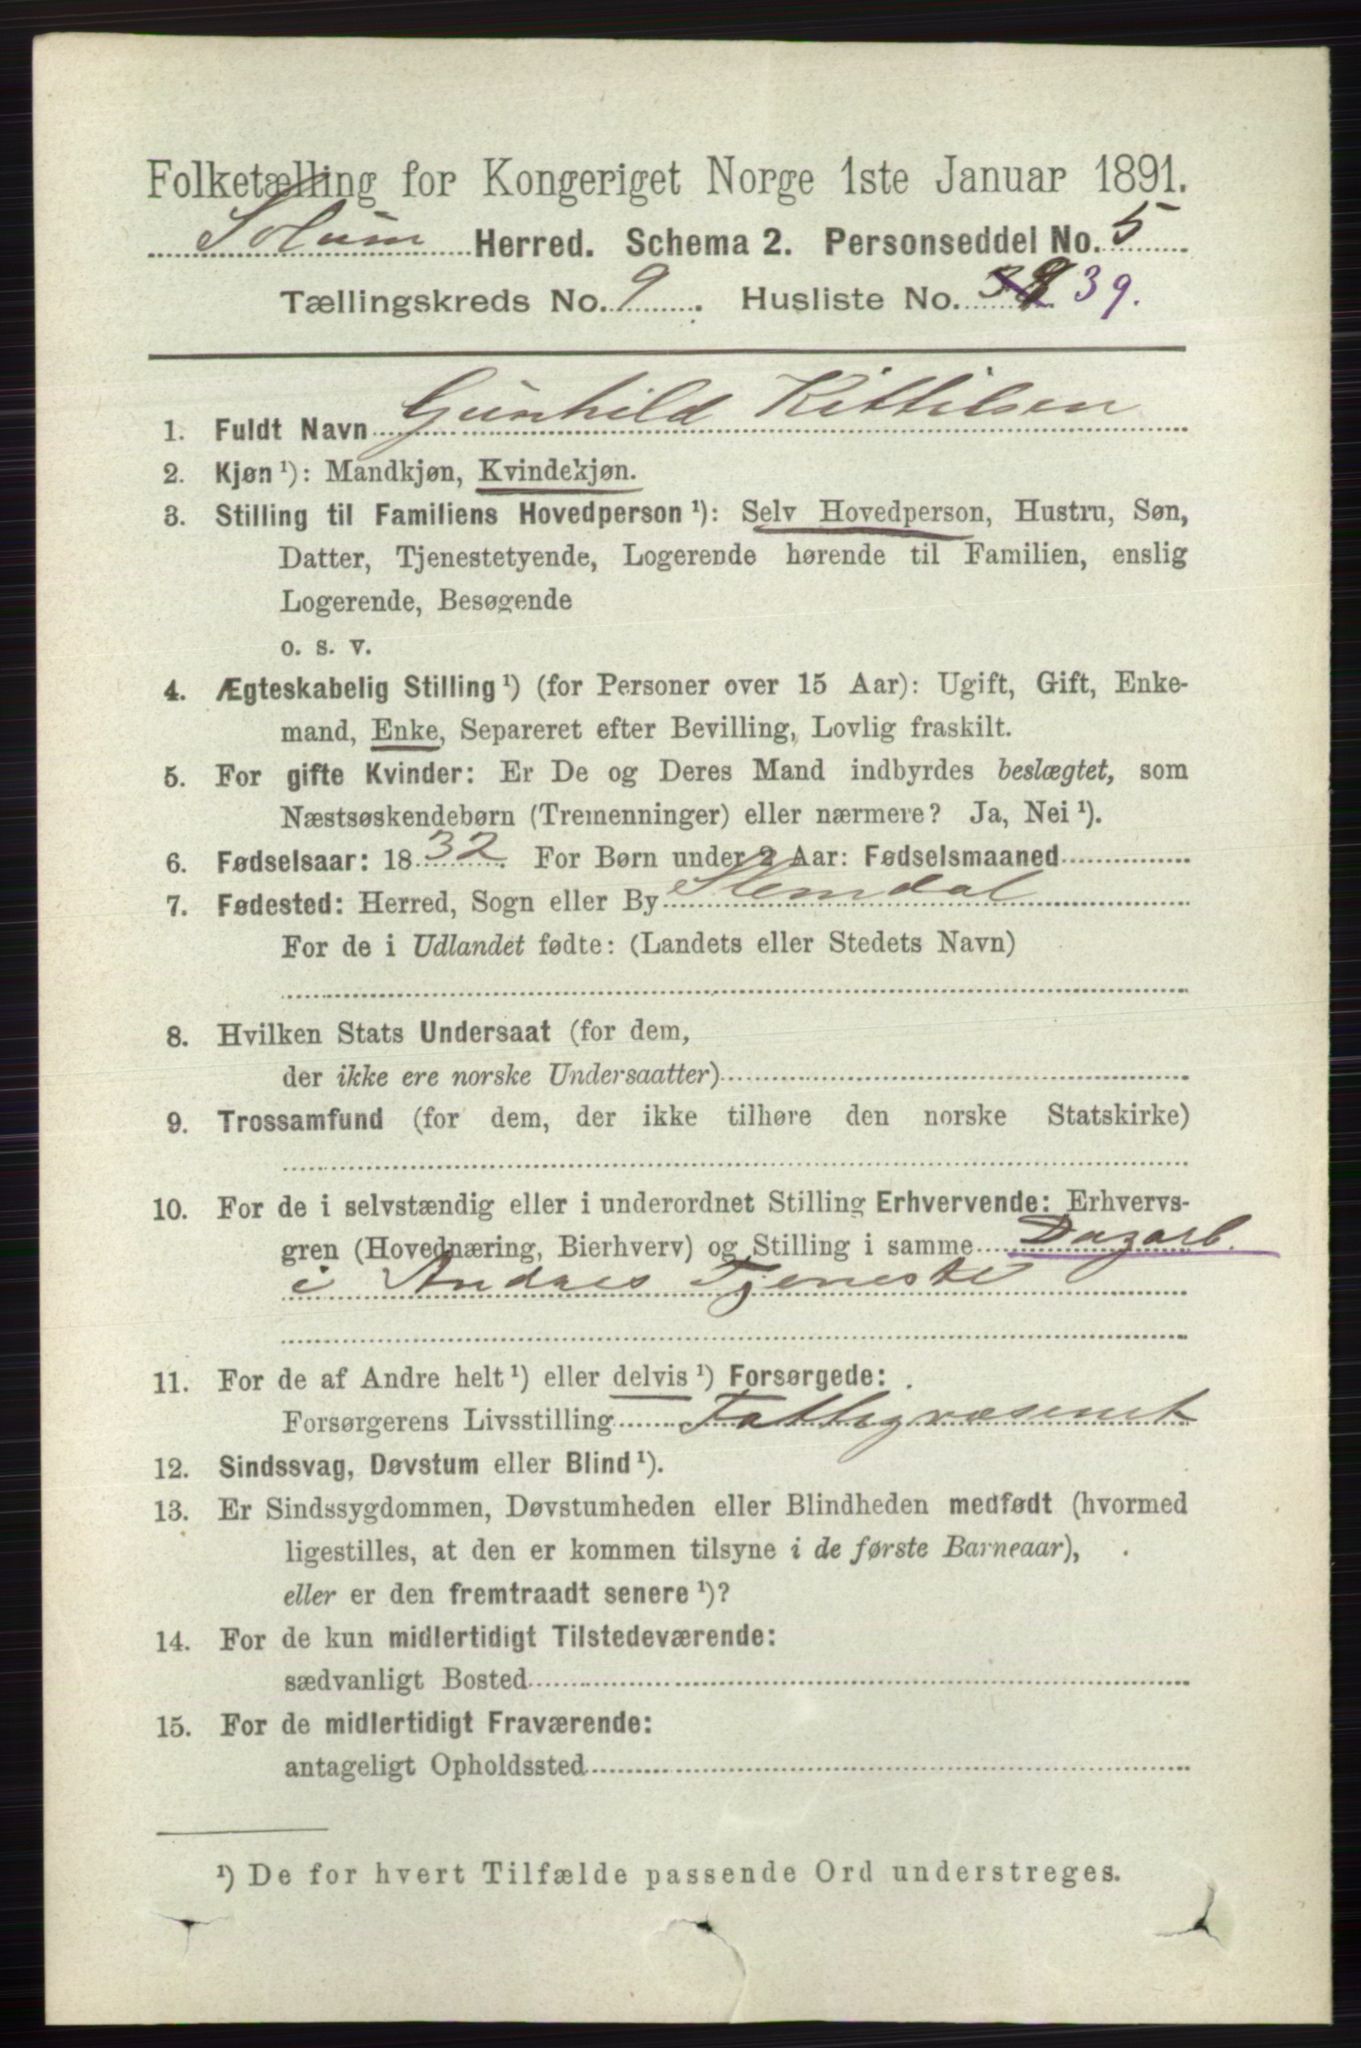 Folketælling for Kongeriget Norge 1ste Januar 1891.
Solum Herred. Schema 2. Personseddel No. 5
Tællingskreds No. 9. Husliste No. 39.
1. Fuldt Navn Gunhild Kittilsen
2. Kjøn ¹): Mandkjøn, Kvindekjøn.
3. Stilling til Familiens Hovedperson ¹): Selv Hovedperson, Hustru, Søn,
Datter, Tjenestetyende, Logerende hørende til Familien, enslig
Logerende, Besøgende
o. s. v.
4. Ægteskabelig Stilling ¹) (for Personer over 15 Aar): Ugift, Gift, Enke-
mand, Enke, Separeret efter Bevilling, Lovlig fraskilt.
5. For gifte Kvinder: Er De og Deres Mand indbyrdes beslægtet, som
Næstsøskendebørn (Tremenninger) eller nærmere? Ja, Nei ¹).
6. Fødselsaar: 1832. For Børn under 2 Aar: Fødselsmaaned
7. Fødested: Herred, Sogn eller By Slemdal
For de i Udlandet fødte: (Landets eller Stedets Navn)
8. Hvilken Stats Undersaat (for dem,
der ikke ere norske Undersaatter)
9. Trossamfund (for dem, der ikke tilhøre den norske Statskirke)
10. For de i selvstændig eller i underordnet Stilling Erhvervende: Erhvervs-
gren (Hovednæring, Bierhverv) og Stilling i samme Dagarb.
i Andres Tjeneste
11. For de af Andre helt ¹) eller delvis ¹) Forsørgede:
Forsørgerens Livsstilling Fattigvæsenet
12. Sindssvag, Døvstum eller Blind ¹).
13. Er Sindssygdommen, Døvstumheden eller Blindheden medfødt (hvormed
ligestilles, at den er kommen tilsyne i de første Barneaar),
eller er den fremtraadt senere ¹)?
14. For de kun midlertidigt Tilstedeværende:
sædvanligt Bosted
15. For de midlertidigt Fraværende:
antageligt Opholdssted
¹) De for hvert Tilfælde passende Ord understreges.